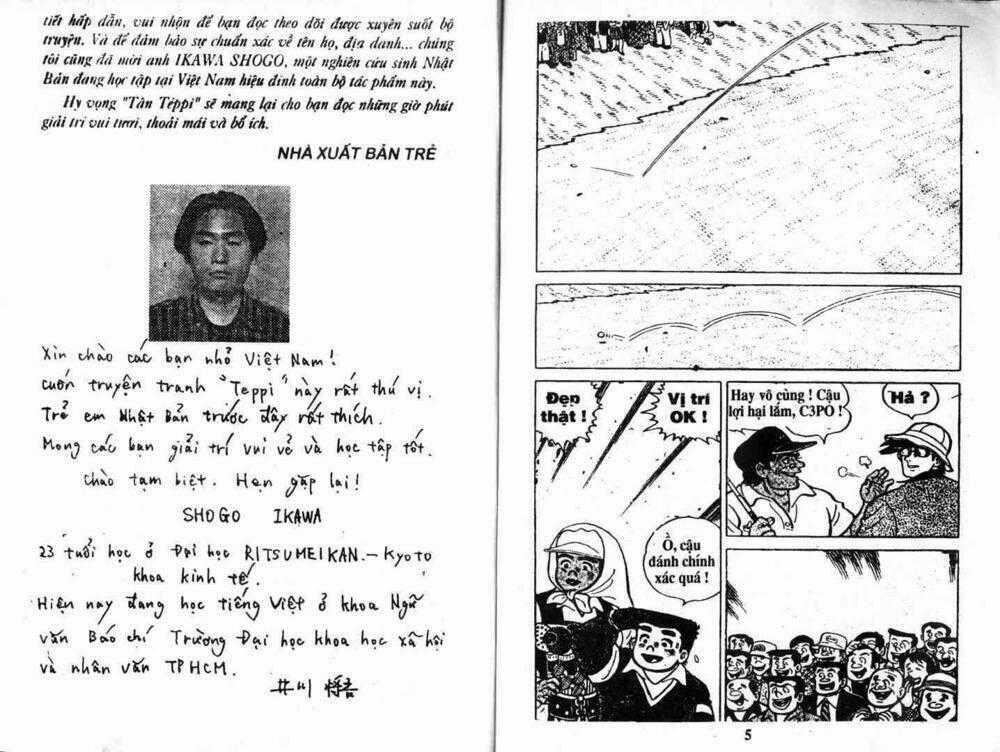 tiết hấp dẫn, vui nhộn để bạn đọc theo dõi được xuyên suốt bộ
truyện. Và để đảm bảo sự chuẩn xác về tên họ, địa danh... chúng
tôi cũng đã mời anh IKAWA SHOGO, một nghiên cứu sinh Nhật
Bản đang học tập tại Việt Nam hiệu đính toàn bộ tác phẩm này.
Hy vọng "Tân Teppi" sẽ mang lại cho bạn đọc những giờ phút
giải trí vui tươi, thoải mái và bổ ích.
NHÀ XUẤT BẢN TRẺ
Xin chào các bạn nhỏ Việt Nam!
cuốn truyện tranh "Teppi" này rất thú vị.
Trẻ em Nhật Bản trước đây rất thích.
Mong các bạn giải trí vui vẻ và học tập tốt.
chào tạm biệt. Hẹn gặp lại!
SHOGO IKAWA
23 tuổi học ở Đại học RITSUMEIKAN. – Kyoto
khoa kinh tế.
Hiện nay đang học tiếng Việt ở khoa Ngữ
văn Báo chí Trường Đại học khoa học xã hội
và nhân văn TPHCM.
井川 将吾
Đẹp
thật !
Vị trí
OK !
Ồ, cậu
đánh chính
xác quá !
Hay vô cùng ! Cậu
lợi hại lắm, C3PO !
Hả ?
5